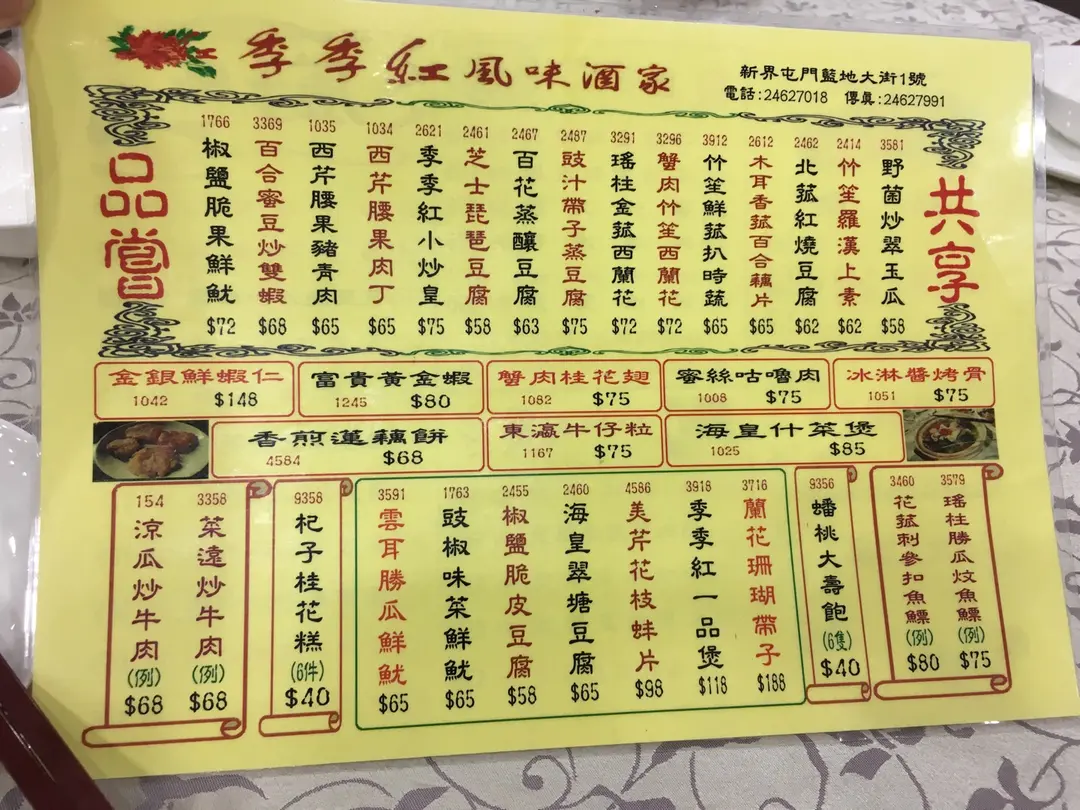 季季紅風味酒家
新界屯門藍地大街1號
電話:24627018 傳真:24627991
品嘗
共享
1766 椒鹽脆果鮮魷 $72
3369 百合蜜豆炒雙蝦 $68
1035 西芹腰果豬青肉 $65
1034 西芹腰果肉丁 $65
2621 季季紅小炒皇 $75
2461 芝士琵琶豆腐 $58
2467 百花蒸釀豆腐 $63
2487 豉汁帶子蒸豆腐 $75
3291 瑤柱金菇西蘭花 $72
3296 蟹肉竹笙西蘭花 $72
3912 竹笙鮮菇扒時蔬 $65
2612 木耳香菇百合藕片 $65
2462 北菇紅燒豆腐 $62
2414 竹笙羅漢上素 $62
3581 野菌炒翠玉瓜 $58
金銀鮮蝦仁 1042 $148
富貴黃金蝦 1245 $80
蟹肉桂花翅 1082 $75
蜜絲咕嚕肉 1008 $75
冰淋醬烤骨 1051 $75
香煎蓮藕餅 4584 $68
東瀛牛仔粒 1167 $75
海皇什菜煲 1025 $85
154 涼瓜炒牛肉 (例) $68
3358 菜遠炒牛肉 (例) $68
9358 杞子桂花糕 (6件) $40
3591 雲耳勝瓜鮮魷 $65
1763 豉椒味菜鮮魷 $65
2455 椒鹽脆皮豆腐 $58
2460 海皇翠塘豆腐 $65
4586 美芹花枝蚌片 $98
3918 季季紅一品煲 $118
3716 蘭花珊瑚帶子 $188
9356 蟠桃大壽飽 (6隻) $40
3460 花菇刺參扣魚鰾 (例) $80
3579 瑤柱勝瓜炆魚鰾 (例) $75